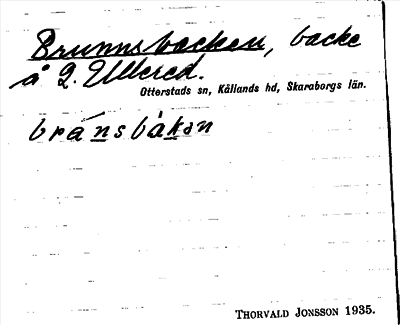 Brunnsbacken, backe
å 2. Ullered.
Otterstads sn, Kållands hd, Skaraborgs län.
bránsbàkan
THORVALD JONSSON 1935.